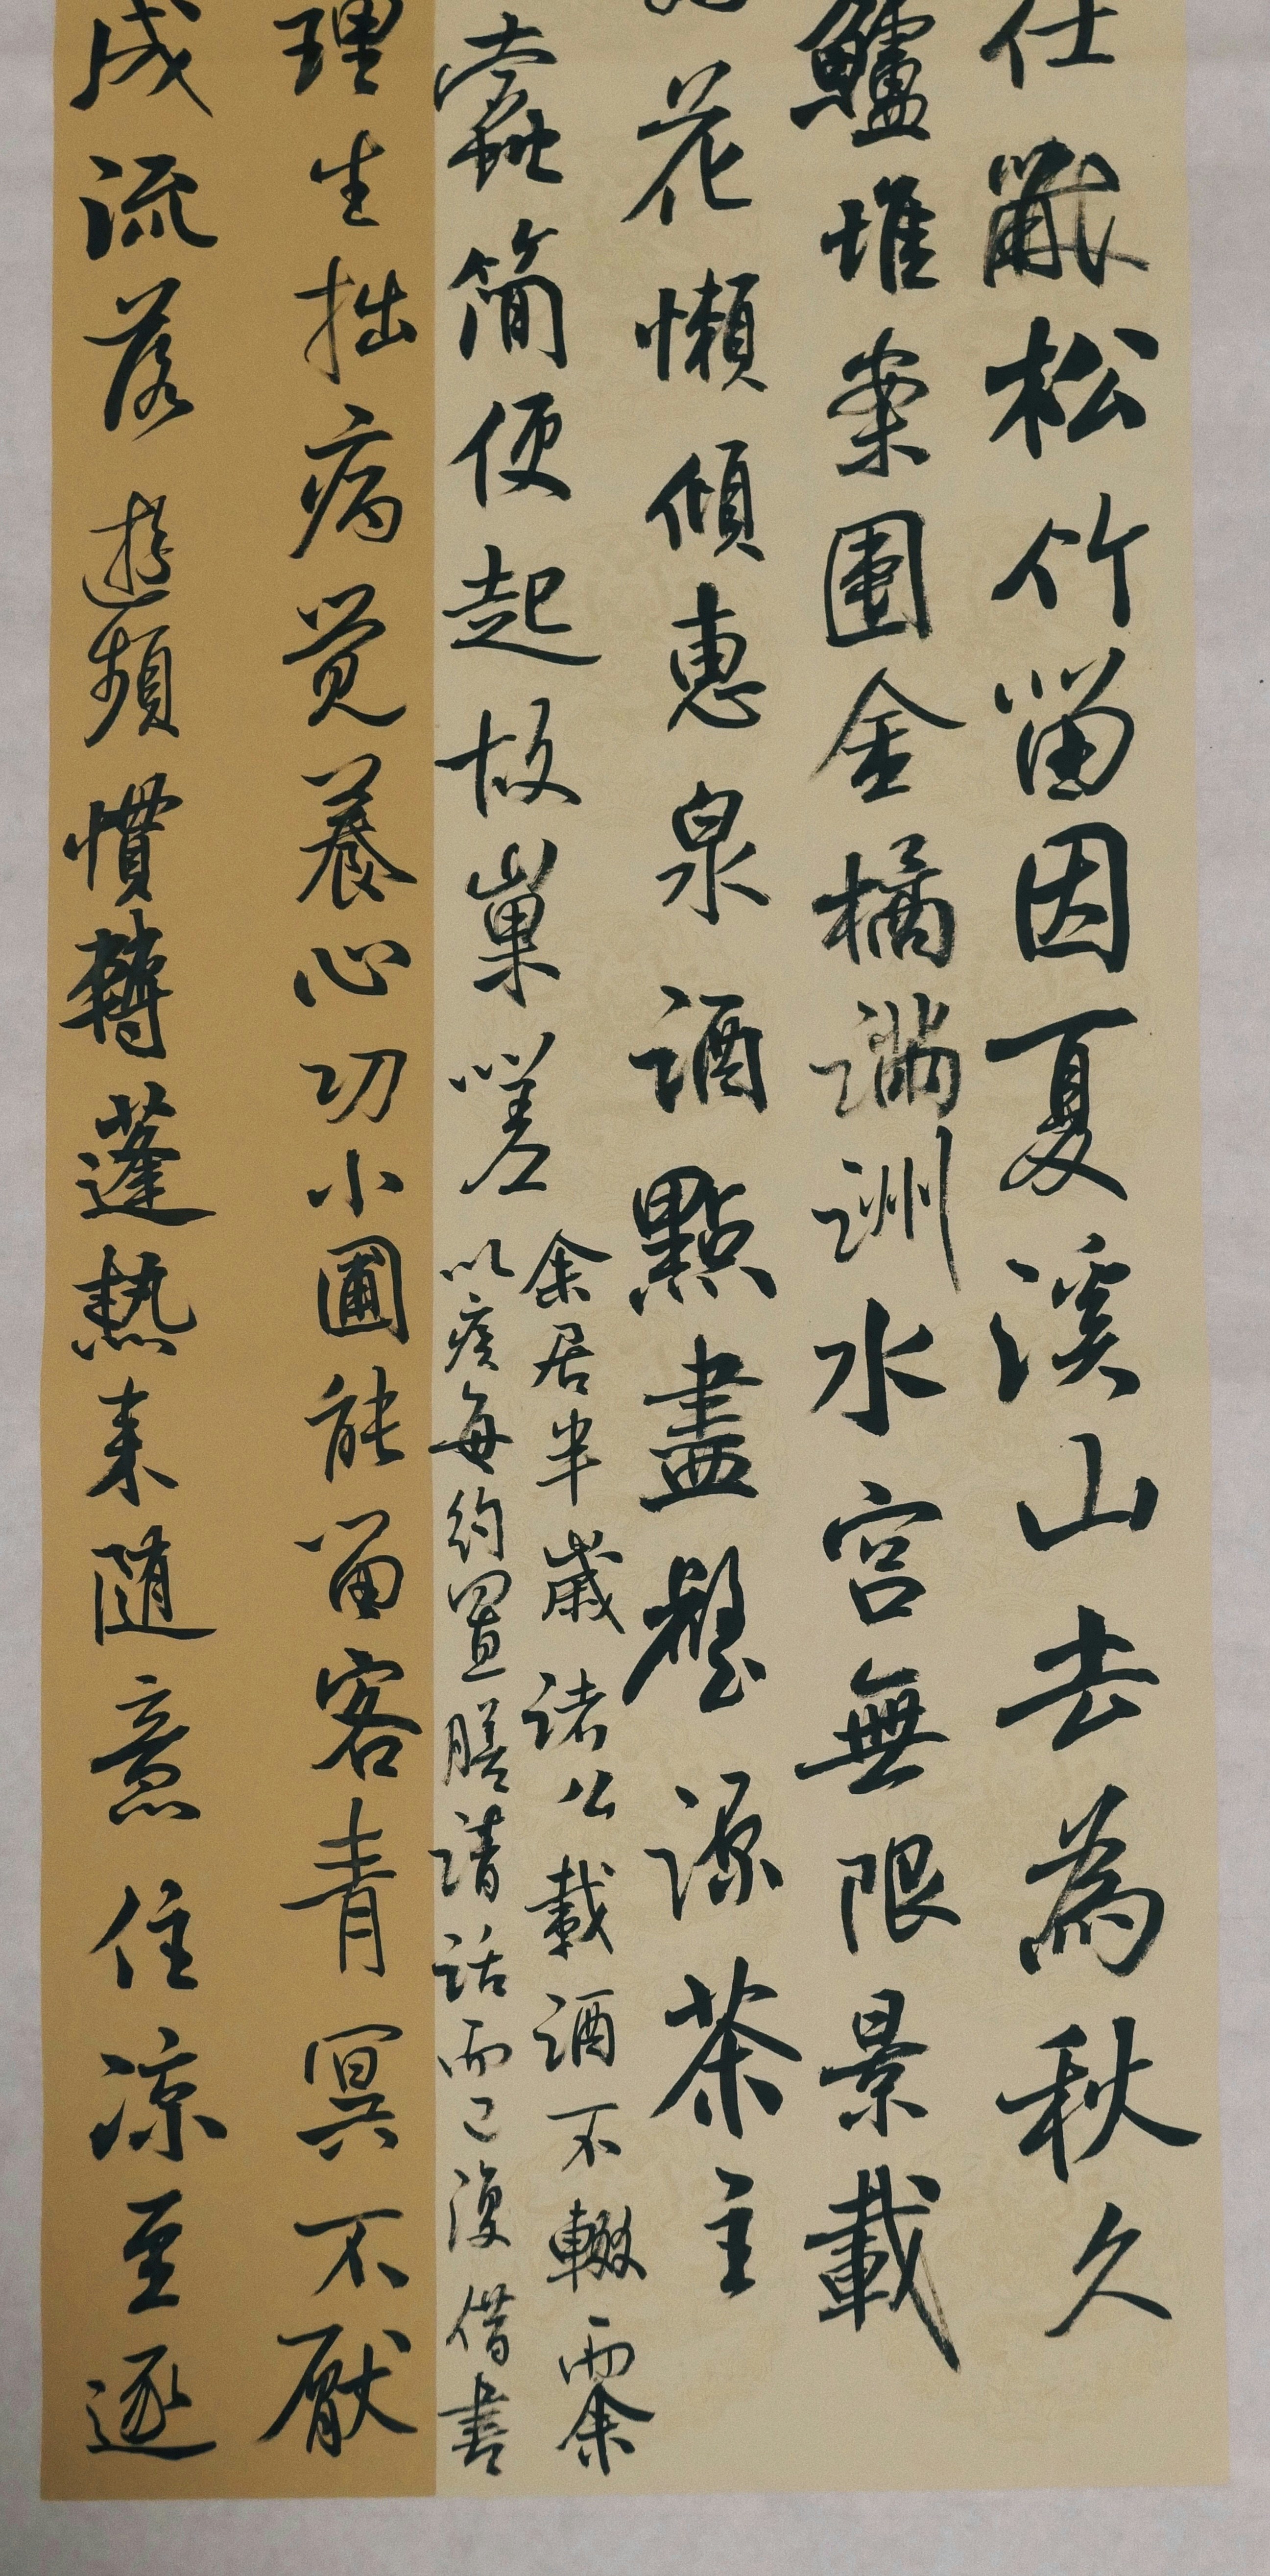 仕黻松竹留因夏溪山去為秋久
鱸堆案團金橘滿洲水宮無限景載
花懶傾惠泉酒點盡壑源茶主
蠹簡便起故巢嗟
余居半歲諸公載酒不輟而余
以疾每約置膳清話而已復借書
理生拙病覺養心功小圃能留客青冥不厭
成流落遊頻慣轉蓬熱來隨意住涼至逐